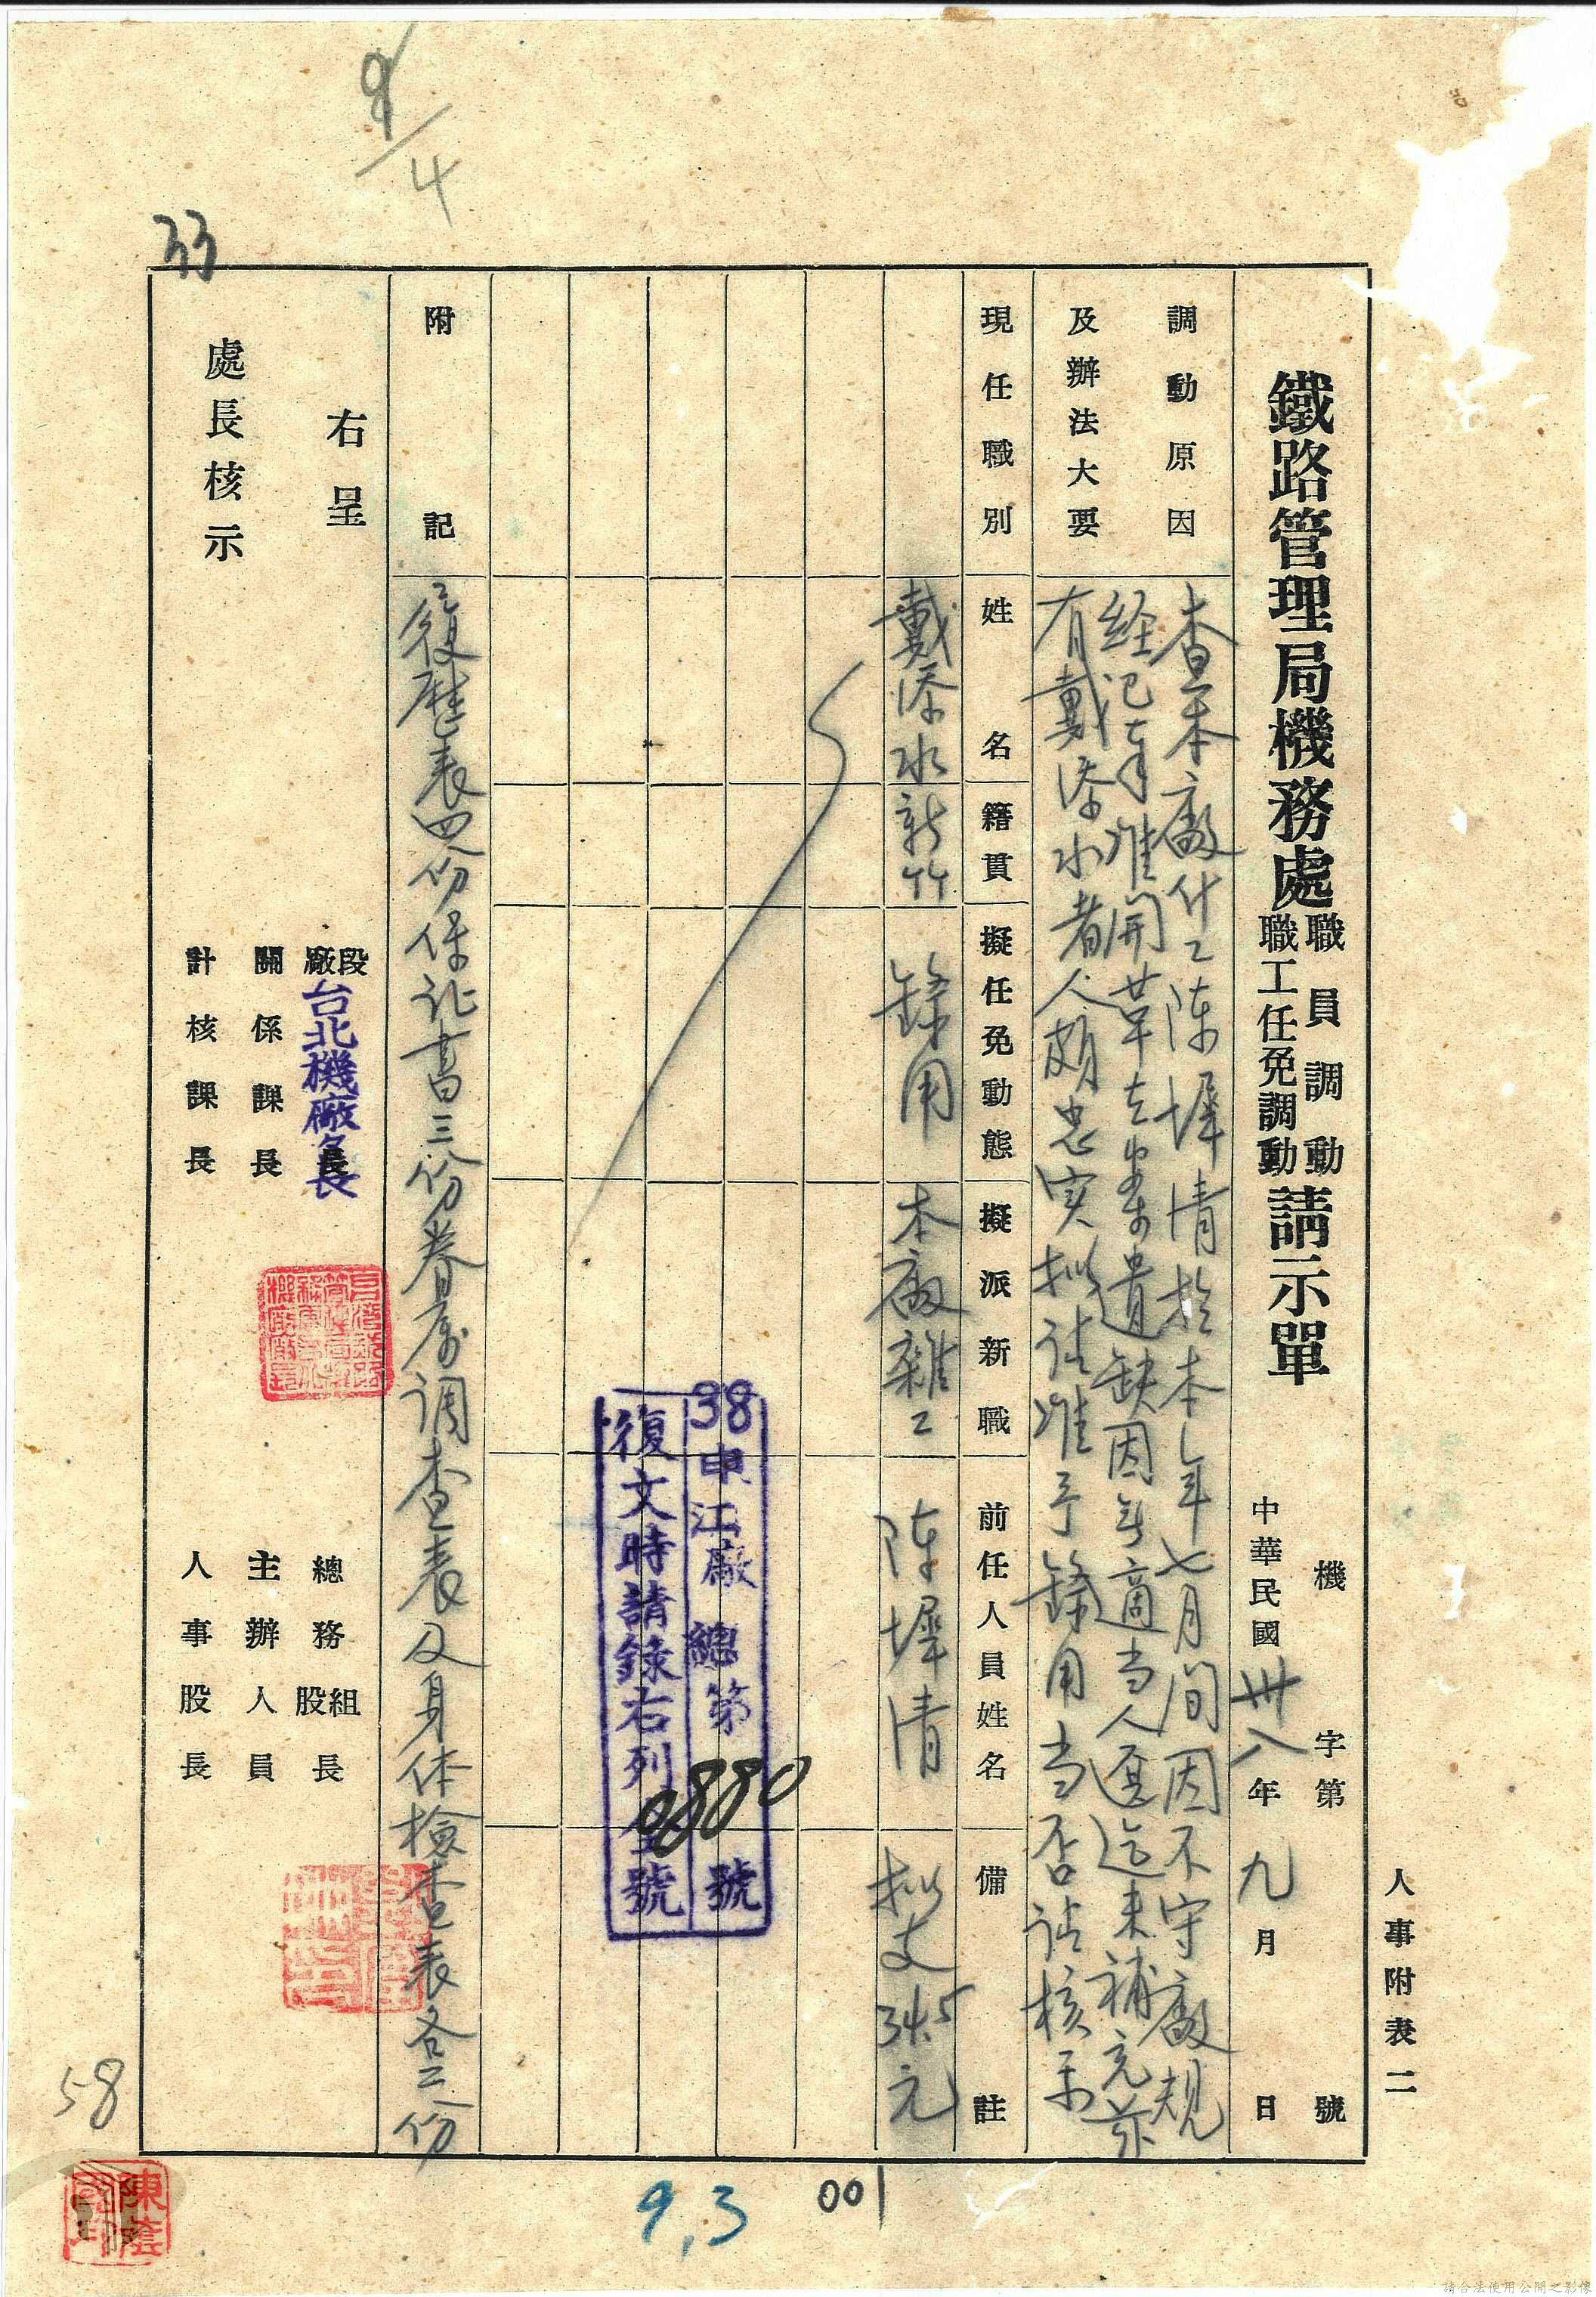 人事附表二
鐵路管理局機務處職員調動職工任免調動請示單
機 字第 號
中華民國卅八年九月 日
調動原因
及辦法大要
查本廠什工陳墀清於本年七月間因不守廠規
経已奉准開革在案遺缺因無適当人選迄未補充茲
有戴添水者人頗忠実拟请准予錄用当否请核示
現任職別
姓名
籍貫
擬任免動態
擬派新職
前任人員姓名
備註
戴添水
新竹
錄用
本廠雜工
陳墀清
拟支34.5元
38申江廠總第0880號
復文時請錄右列全號
附記
履歷表四份保证書三份眷属调查表及身体檢查表各二份
右呈
處長核示
段廠長
台北機廠長
關係課長
計核課長
總務組股長
主辦人員
人事股長
9/4
33
58
9,3
001
請合法使用公開之影像